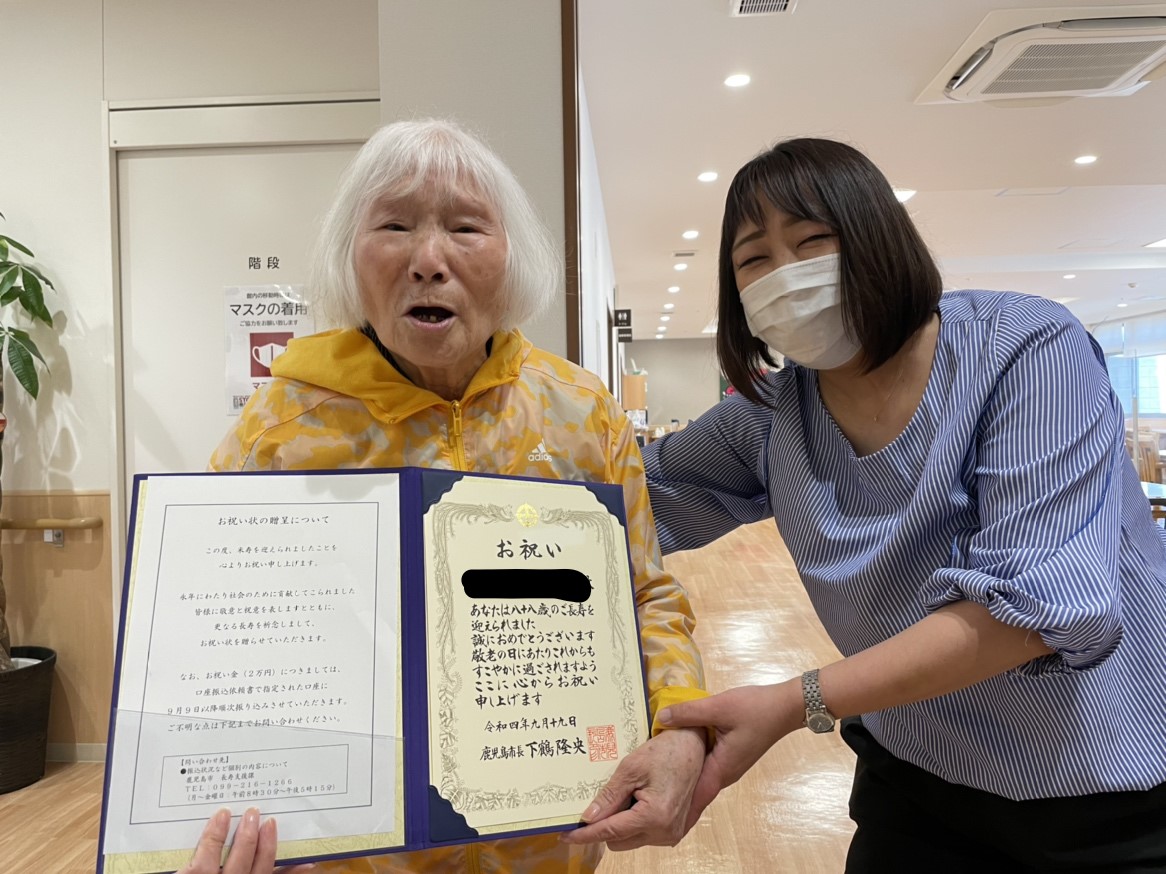 階段
館内の移動時には
マスクの着用
ご協力をお願い致します
adidas
お祝い状の贈呈について
この度、米寿を迎えられましたことを
心よりお祝い申し上げます。
永年にわたり社会のために貢献してこられました
皆様に敬意と祝意を表しますとともに、
更なる長寿を祈念しまして、
お祝い状を贈らせていただきます。
なお、お祝い金（2万円）につきましては、
口座振込依頼書で指定された口座に
9月9日以降順次振り込みさせていただきます。
ご不明な点は下記までお問い合わせください。
【問い合わせ先】
●振込状況など個別の内容について
鹿児島市　長寿支援課
TEL：099-216-1266
（月～金曜日：午前8時30分～午後5時15分）
お祝い
あなたは八十八歳のご長寿を
迎えられました
誠におめでとうございます
敬老の日にあたりこれからも
すこやかに過ごされますよう
ここに心からお祝い
申し上げます
令和四年九月十九日
鹿児島市長 下鶴隆央